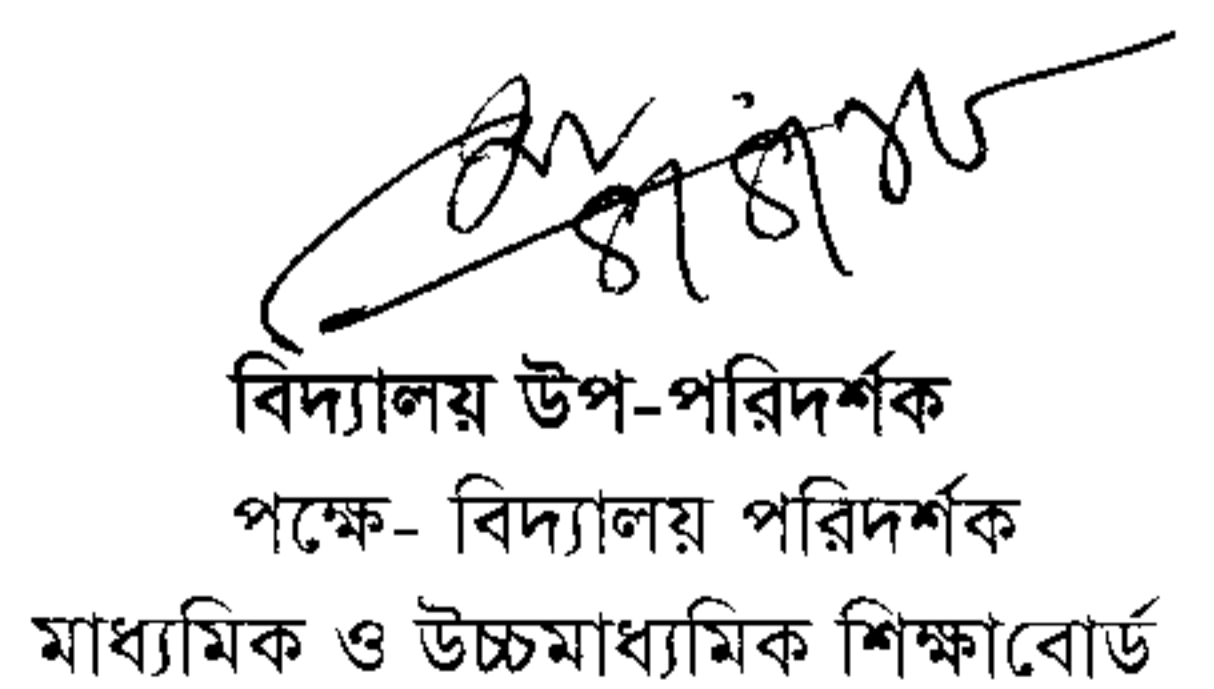 বিদ্যালয় উপ-পরিদর্শক
পক্ষে- বিদ্যালয় পরিদর্শক
মাধ্যমিক ও উচ্চমাধ্যমিক শিক্ষাবোর্ড